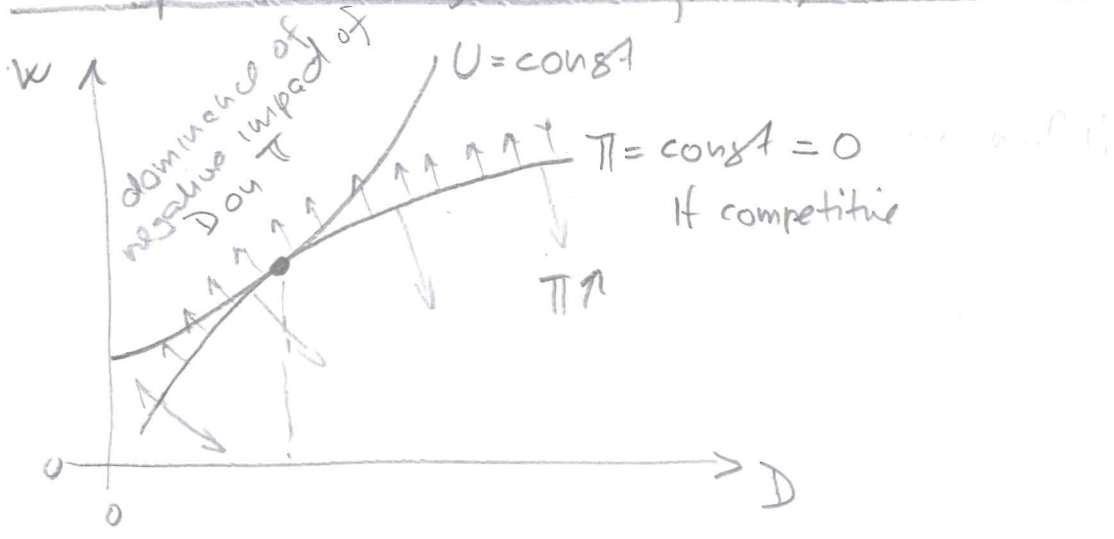 W
dominance of
negative impact of
D on π
U = const
π = const = 0
If competitive
π ↑
0
D
0